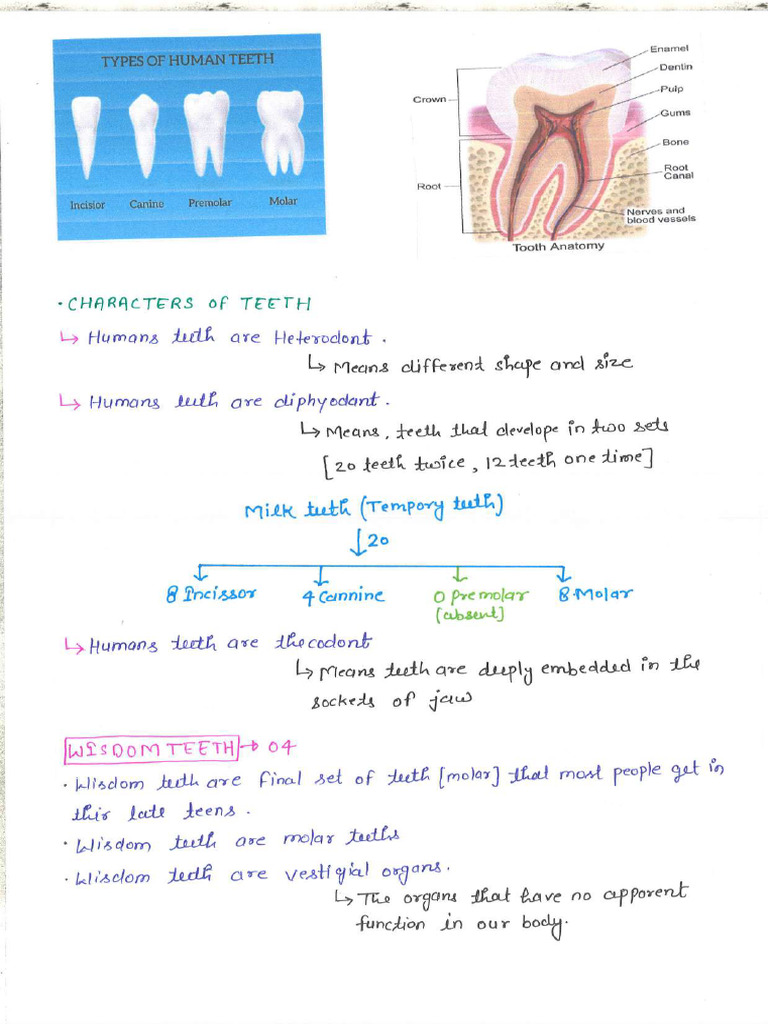 TYPES OF HUMAN TEETH
Incisior Canine Premolar Molar
Enamel
Dentin
Pulp
Crown
Gums
Bone
Root
Canal
Root
Nerves and
blood vessels
Tooth Anatomy
• CHARACTERS OF TEETH
↳ Humans teeth are Heterodont.
↳ Means different shape and size
↳ Humans teeth are diphyodant.
↳ Means, teeth that develope in two sets
[20 teeth twice, 12 teeth one time]
Milk teeth (Tempory teeth)
↓20
8 Incissor 4 Cannine 0 Premolar 8 Molar
[absent]
↳ Humans teeth are thecodont
↳ Means teeth are deeply embedded in the
sockets of jaw
WISDOM TEETH → 04
• Wisdom teeth are final set of teeth [molar] that most people get in
their late teens.
• Wisdom teeth are molar teeths
• Wisdom teeth are vestigial organs.
↳ The organs that have no apparent
function in our body.